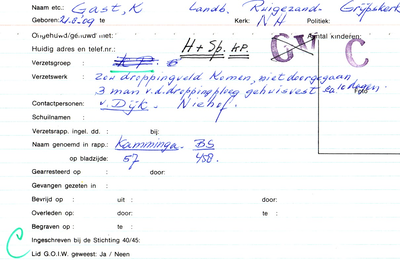 Naam etc.: Gast, K Landb. Ruigezand - Grijpskerk
Geboren: 21.8.09 te Kerk: NH Politiek:
Ongehuwd/gehuwd met: Aantal kinderen:
Huidig adres en telef.nr.: H + Sp. KP. GV C
Verzetsgroep : K.P.
Verzetswerk : zou droppingveld komen, niet doorgegaan
3 man v.d. droppingploeg gehuisvest ca 10 dagen.
Contactpersonen: v. Dijk - Niehof.
Schuilnaam :
Verzetsrapp. ingel. dd. : bij:
Naam genoemd in rapp.: Kamminga BS
op bladzijde: 57 458.
Gearresteerd op : door:
Gevangen gezeten in :
Bevrijd op : uit : door:
Overleden op: door: te :
Begraven op : te :
C Ingeschreven bij de Stichting 40/45:
Lid G.O.I.W. geweest: Ja / Neen